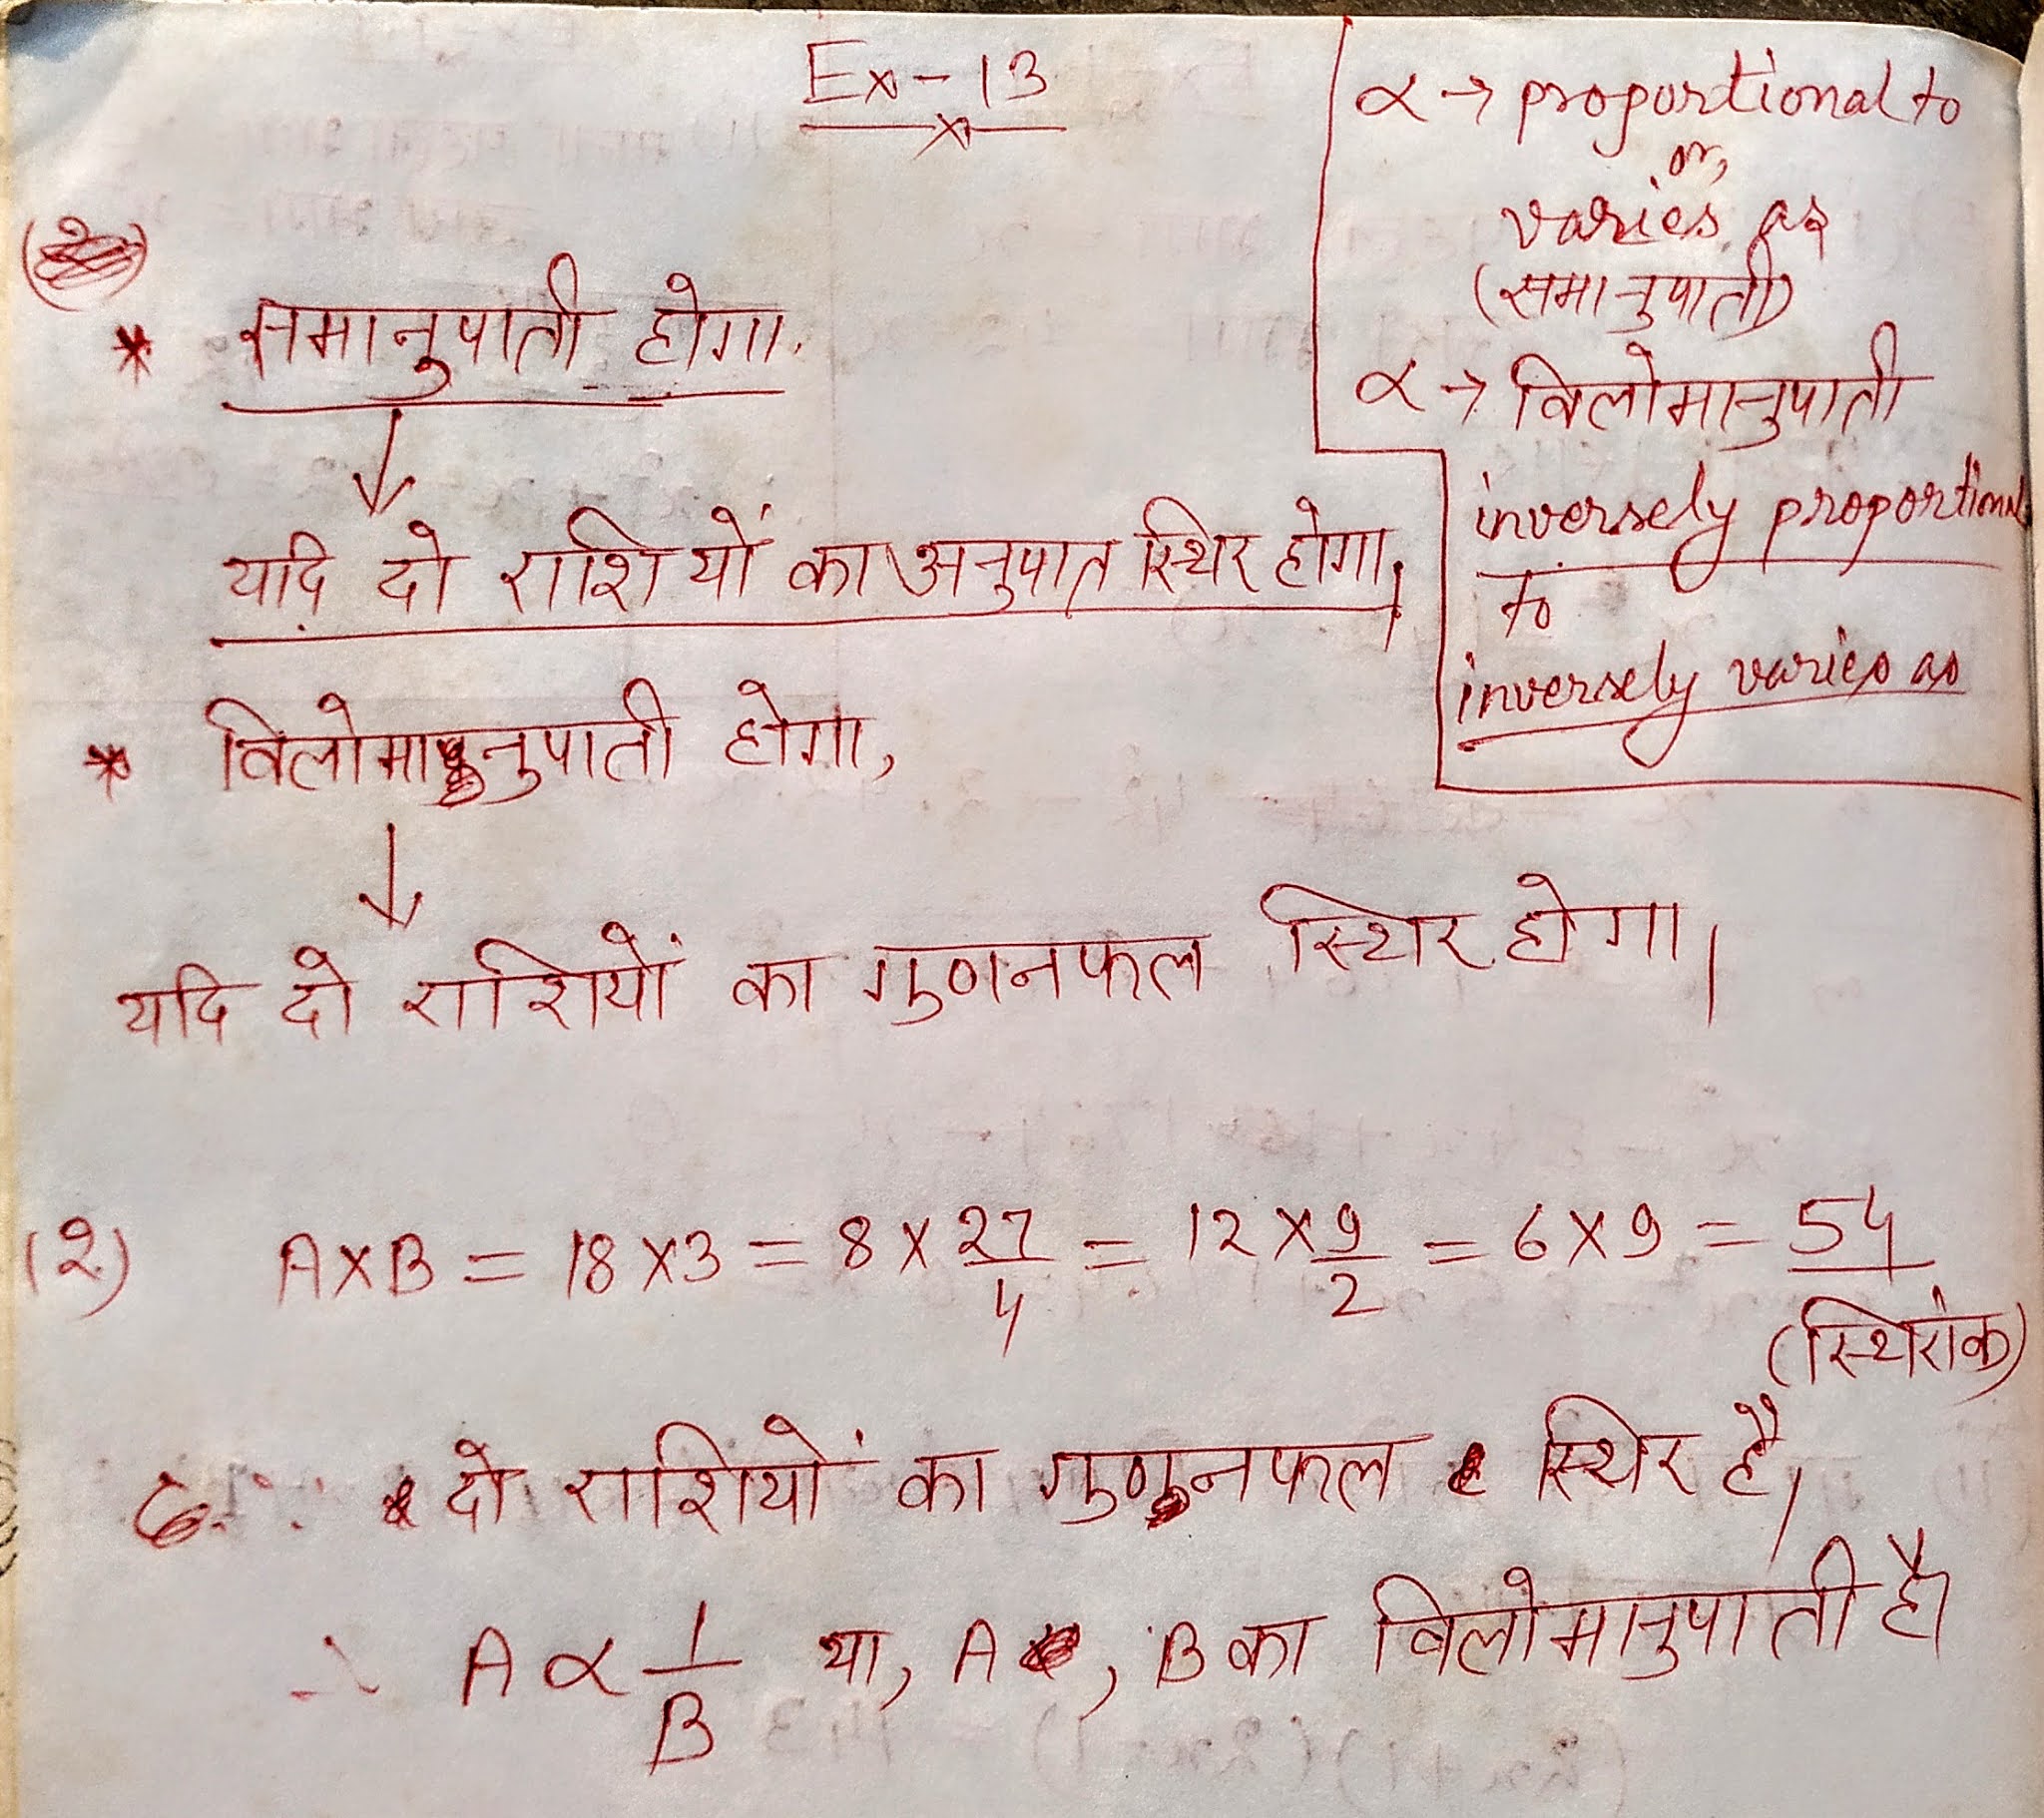 Ex-13
α → proportional to
or,
varies as
(समानुपाती)
α → विलोमानुपाती
inversely proportional
to
inversely varies as
* समानुपाती होगा,
↓
यदि दो राशियों का अनुपात स्थिर होगा।
* विलोमानुपाती होगा,
↓
यदि दो राशियों का गुणनफल स्थिर होगा।
(2) A×B = 18×3 = 8×27/4 = 12×9/2 = 6×9 = 54
(स्थिरांक)
∵ दो राशियों का गुणनफल स्थिर है,
∴ A ∝ 1/B या, A, B का विलोमानुपाती है।